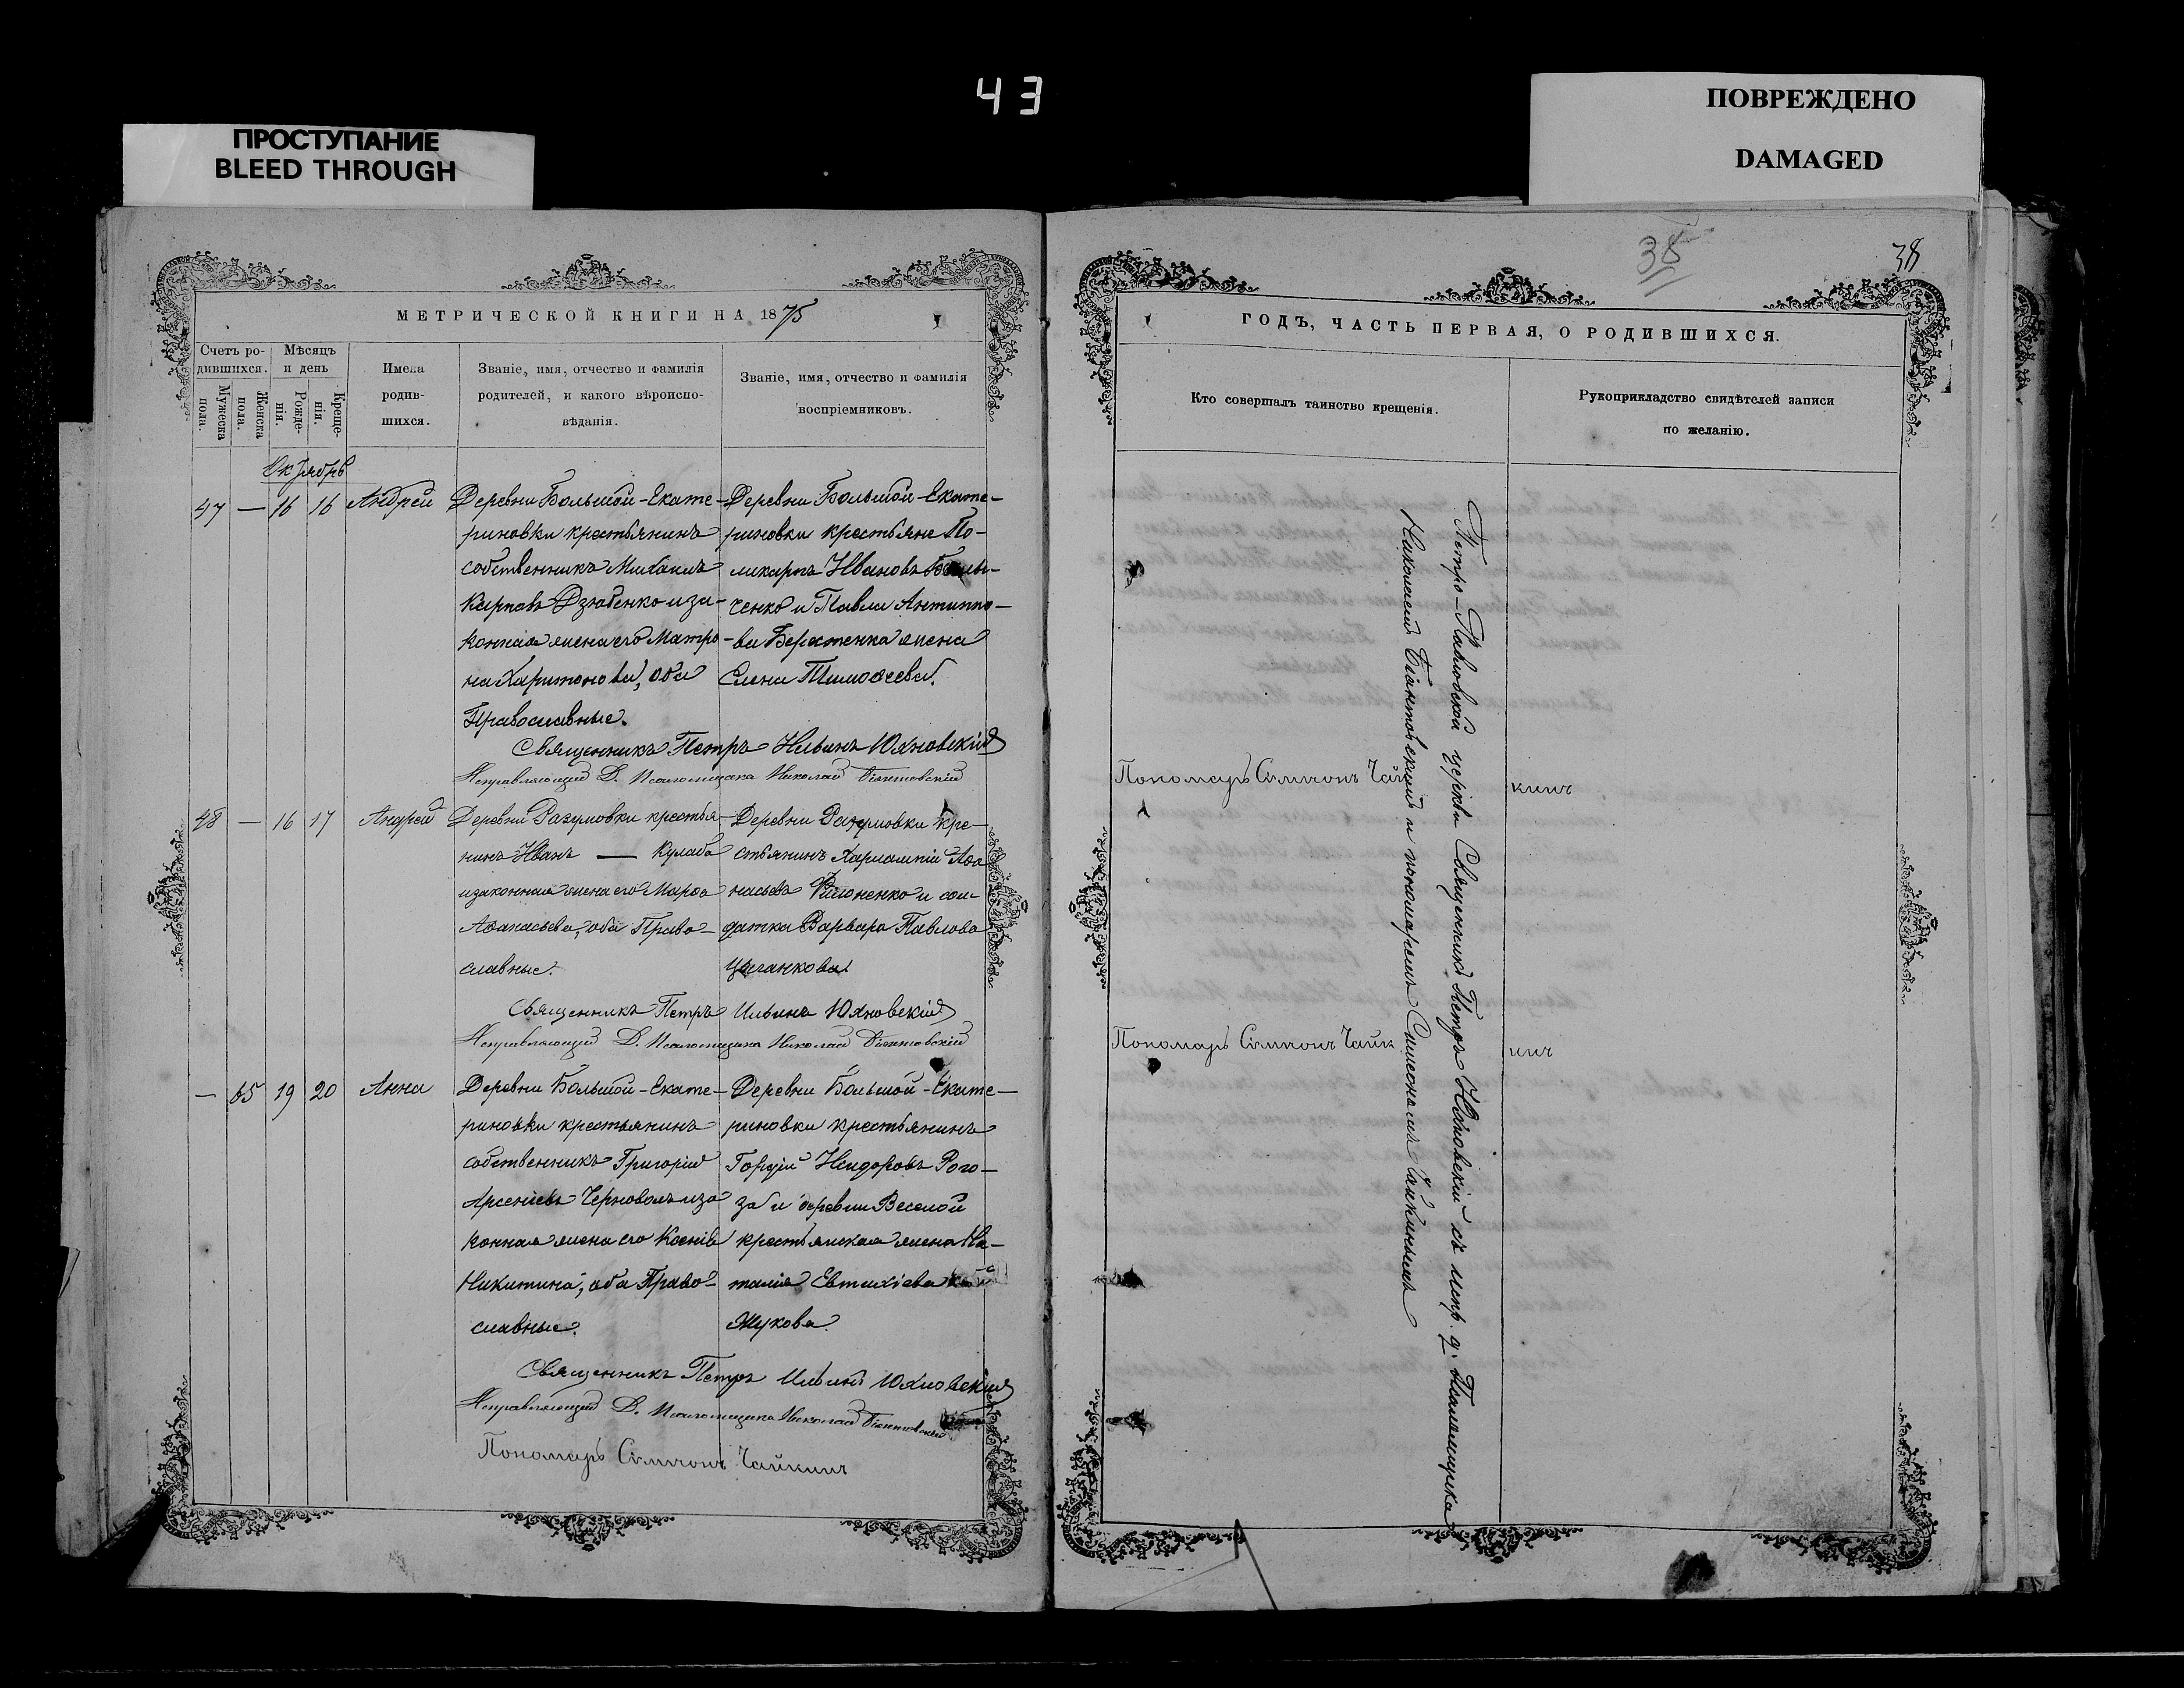 43
ПРОСТУПАНИЕ
BLEED THROUGH
ПОВРЕЖДЕНО
DAMAGED
МЕТРИЧЕСКОЙ КНИГИ НА 1875
Счетъ ро-
дившихся.
Мужеска
пола.
Женска
пола.
Мѣсяцъ
и день
Рожде-
нія.
Креще-
нія.
Имена
родив-
шихся.
Званіе, имя, отчество и фамилія
родителей, и какого вѣроиспо-
вѣданія.
Званіе, имя, отчество и фамилія
воспріемниковъ.
Октябрь
47 — 16 16 Андрей
Деревни Большой-Екате-
риновки крестьянинъ
собственникъ
Карповъ Дзюбенко и за-
конная жена его Матро-
на Харитонова, оба
Православные.
Деревни Большой-Екате-
риновки крестьяне По-
ликарпъ Ивановъ
ченко и Павла Антипо-
ва жена
Елена Тимоѳеева.
Священникъ Петръ Ильинъ Юхновскій
Исправляющій Д. Псаломщика Николай Біянтовскій
Пономарь Симеонъ Чайкинъ
48 — 16 17 Андрей
Деревни Разумовки крестья-
нинъ Иванъ — Кулаба
и законная жена его Марѳа
Аѳанасьева, оба Право-
славные.
Деревни Разумовки кре-
стьянинъ Харлампій Аѳа
насьевъ Филоненко и сол-
датка Варвара Павлова
Цыганкова
Священникъ Петръ Ильинъ Юхновскій
Исправляющій Д. Псаломщика Николай Біянтовскій
Пономарь Симеонъ Чайкинъ
— 65 19 20 Анна
Деревни Большой-Екате-
риновки крестьянинъ
собственникъ Григорій
Арсеніевъ Черноволъ и за
конная жена его Ксенія
Никитина, оба Право-
славные.
Деревни Большой-Екате-
риновки крестьянинъ
Гордій Исидоровъ Рого-
за и деревни Веселой
крестьянская жена На-
талія Евтихіева
Жукова.
Священникъ Петръ Ильинъ Юхновскій
Исправляющій Д. Псаломщика Николай Біянтовскій
Пономарь Симеонъ Чайкинъ
38
38
ГОДЪ, ЧАСТЬ ПЕРВАЯ, О РОДИВШИХСЯ.
Кто совершалъ таинство крещенія.
Рукоприкладство свидѣтелей записи
по желанію.
Петро-Павловской церкви Священникъ Петръ Юхновскій съ испр. д. Псаломщика
Николаемъ Біянтовскимъ и пономаремъ Симеономъ Чайкинымъ